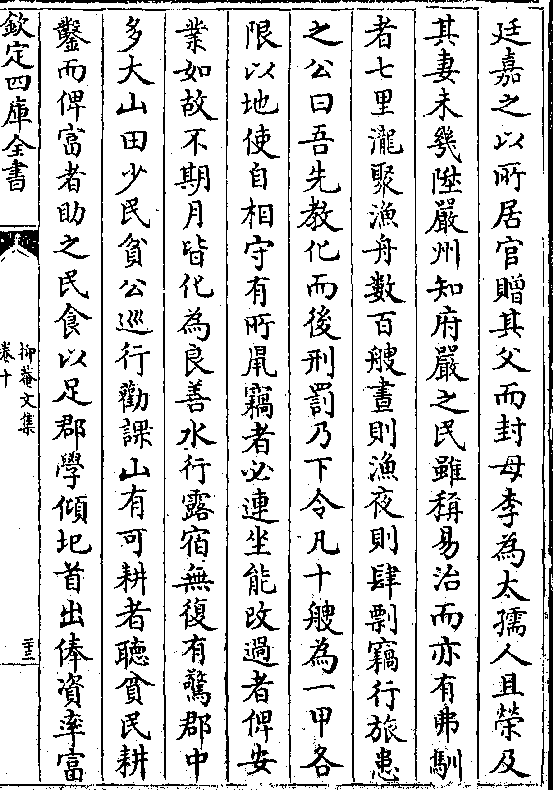 廷嘉之以所居官贈其父而封母李為太孺人且榮及
其妻未幾陞嚴州知府嚴之民雖稱易治而亦有弗馴
者七里瀧聚漁舟數百艘晝則漁夜則肆剽竊行旅患
之公曰吾先教化而後刑罰乃下令凡十艘為一甲各
限以地使自相守有所鼡竊者必連坐能改過者俾安
業如故不期月皆化為良善水行露宿無復有驚郡中
多大山田少民貧公巡行勸課山有可耕者聽貧民耕
鑿而俾富者助之民食以足郡學傾圯首出俸資率富
欽定四庫全書
抑菴文集
卷十
二十三